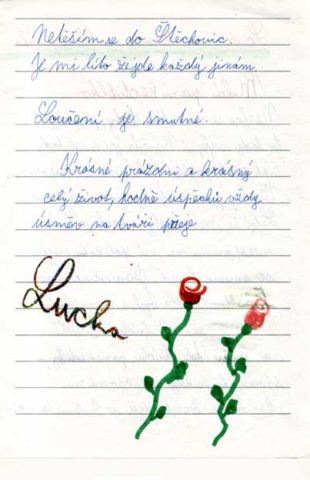 Netěším se do Štěchovic.
Je mi líto že jde každý jinam.
Loučení je smutné.
Krásné prázdni a krásný
celý život, hodně úspěchů vždy
úsměv na tváři přeje
Lucka